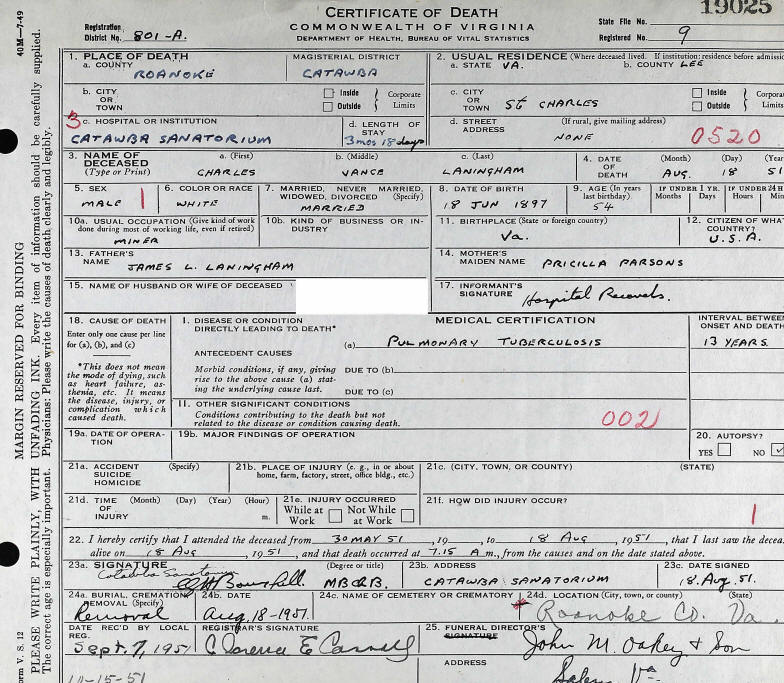 19025
CERTIFICATE OF DEATH
COMMONWEALTH OF VIRGINIA
DEPARTMENT OF HEALTH, BUREAU OF VITAL STATISTICS
Registration District No. 801-A.
State File No.
Registered No. 9
40M—7-49
1. PLACE OF DEATH
a. COUNTY ROANOKE
MAGISTERIAL DISTRICT CATAWBA
2. USUAL RESIDENCE (Where deceased lived. If institution: residence before admissio
a. STATE VA. b. COUNTY LEE
b. CITY OR TOWN
Inside Outside Corporate Limits
c. CITY OR TOWN St CHARLES
Inside Outside Corpora Limits
3
c. HOSPITAL OR INSTITUTION
CATAWBA SANATORIUM
d. LENGTH OF STAY
3 mos 18 days
d. STREET ADDRESS (If rural, give mailing address)
NONE
0520
3. NAME OF DECEASED (Type or Print)
a. (First) CHARLES
b. (Middle) VANCE
c. (Last) LANINGHAM
4. DATE OF DEATH (Month) (Day) (Year
AUG. 18 51
5. SEX MALE 1
6. COLOR OR RACE WHITE
7. MARRIED, NEVER MARRIED, WIDOWED, DIVORCED (Specify)
MARRIED
8. DATE OF BIRTH
18 JUN 1897
9. AGE (In years last birthday) 54
IF UNDER 1 YR. Months Days
IF UNDER 24 H Hours Min
10a. USUAL OCCUPATION (Give kind of work done during most of working life, even if retired)
MINER
10b. KIND OF BUSINESS OR INDUSTRY
11. BIRTHPLACE (State or foreign country)
Va.
12. CITIZEN OF WHA COUNTRY?
U.S.A.
13. FATHER'S NAME JAMES L. LANINGHAM
14. MOTHER'S MAIDEN NAME PRICILLA PARSONS
15. NAME OF HUSBAND OR WIFE OF DECEASED
17. INFORMANT'S SIGNATURE Hospital Records.
18. CAUSE OF DEATH
Enter only one cause per line for (a), (b), and (c)
*This does not mean the mode of dying, such as heart failure, asthenia, etc. It means the disease, injury, or complication which caused death.
MEDICAL CERTIFICATION
INTERVAL BETWEEN ONSET AND DEATH
I. DISEASE OR CONDITION DIRECTLY LEADING TO DEATH*
(a) PULMONARY TUBERCULOSIS
13 YEARS
ANTECEDENT CAUSES
Morbid conditions, if any, giving rise to the above cause (a) stating the underlying cause last.
DUE TO (b)
DUE TO (c)
II. OTHER SIGNIFICANT CONDITIONS
Conditions contributing to the death but not related to the disease or condition causing death.
002
19a. DATE OF OPERATION
19b. MAJOR FINDINGS OF OPERATION
20. AUTOPSY?
YES NO
21a. ACCIDENT SUICIDE HOMICIDE (Specify)
21b. PLACE OF INJURY (e. g., in or about home, farm, factory, street, office bldg., etc.)
21c. (CITY, TOWN, OR COUNTY) (STATE)
21d. TIME OF INJURY (Month) (Day) (Year) (Hour) m.
21e. INJURY OCCURRED
While at Work Not While at Work
21f. HOW DID INJURY OCCUR?
1
22. I hereby certify that I attended the deceased from 30 MAY 51, 19 to 18 AUG, 1951, that I last saw the decea
alive on 18 AUG, 1951, and that death occurred at 7.15 A m., from the causes and on the date stated above.
23a. SIGNATURE (Degree or title) MB&B.
Catawba Sanatorium
23b. ADDRESS
CATAWBA SANATORIUM
23c. DATE SIGNED
18. Aug. 51.
24a. BURIAL, CREMATION REMOVAL (Specify)
Removal
24b. DATE
Aug. 18-1951.
24c. NAME OF CEMETERY OR CREMATORY
24d. LOCATION (City, town, or county) (State)
Roanoke Co. Va.
DATE REC'D BY LOCAL REG.
Sept. 7, 1951
REGISTRAR'S SIGNATURE
Clarence E
25. FUNERAL DIRECTOR'S SIGNATURE
John M. Oakey & Son
ADDRESS
Salem Va
10-15-51
MARGIN RESERVED FOR BINDING
PLEASE WRITE PLAINLY, WITH UNFADING INK. Every item of information should be carefully supplied.
The correct age is especially important. Physicians: Please write the causes of death clearly and legibly.
orm V. S. 12